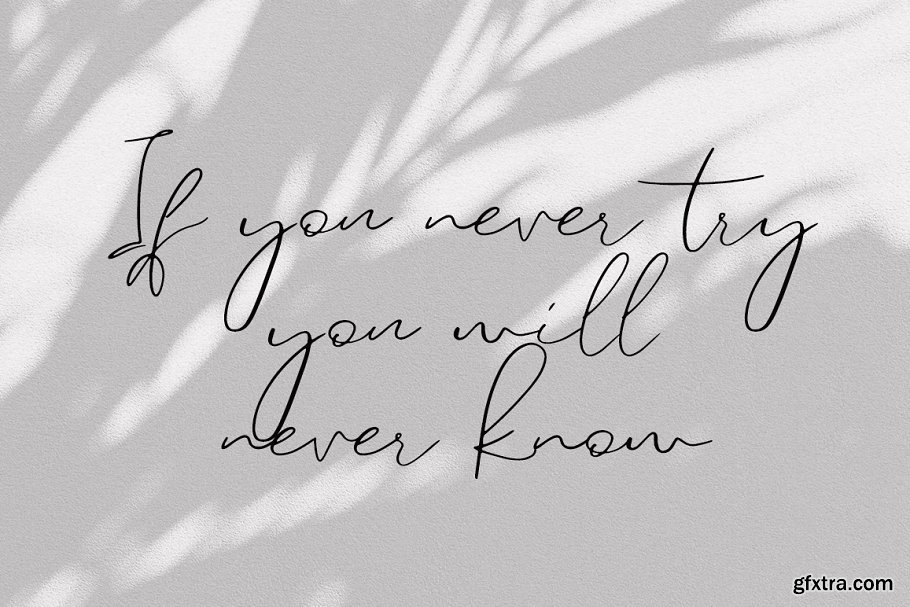 If you never try
you will
never know
gfxtra.com